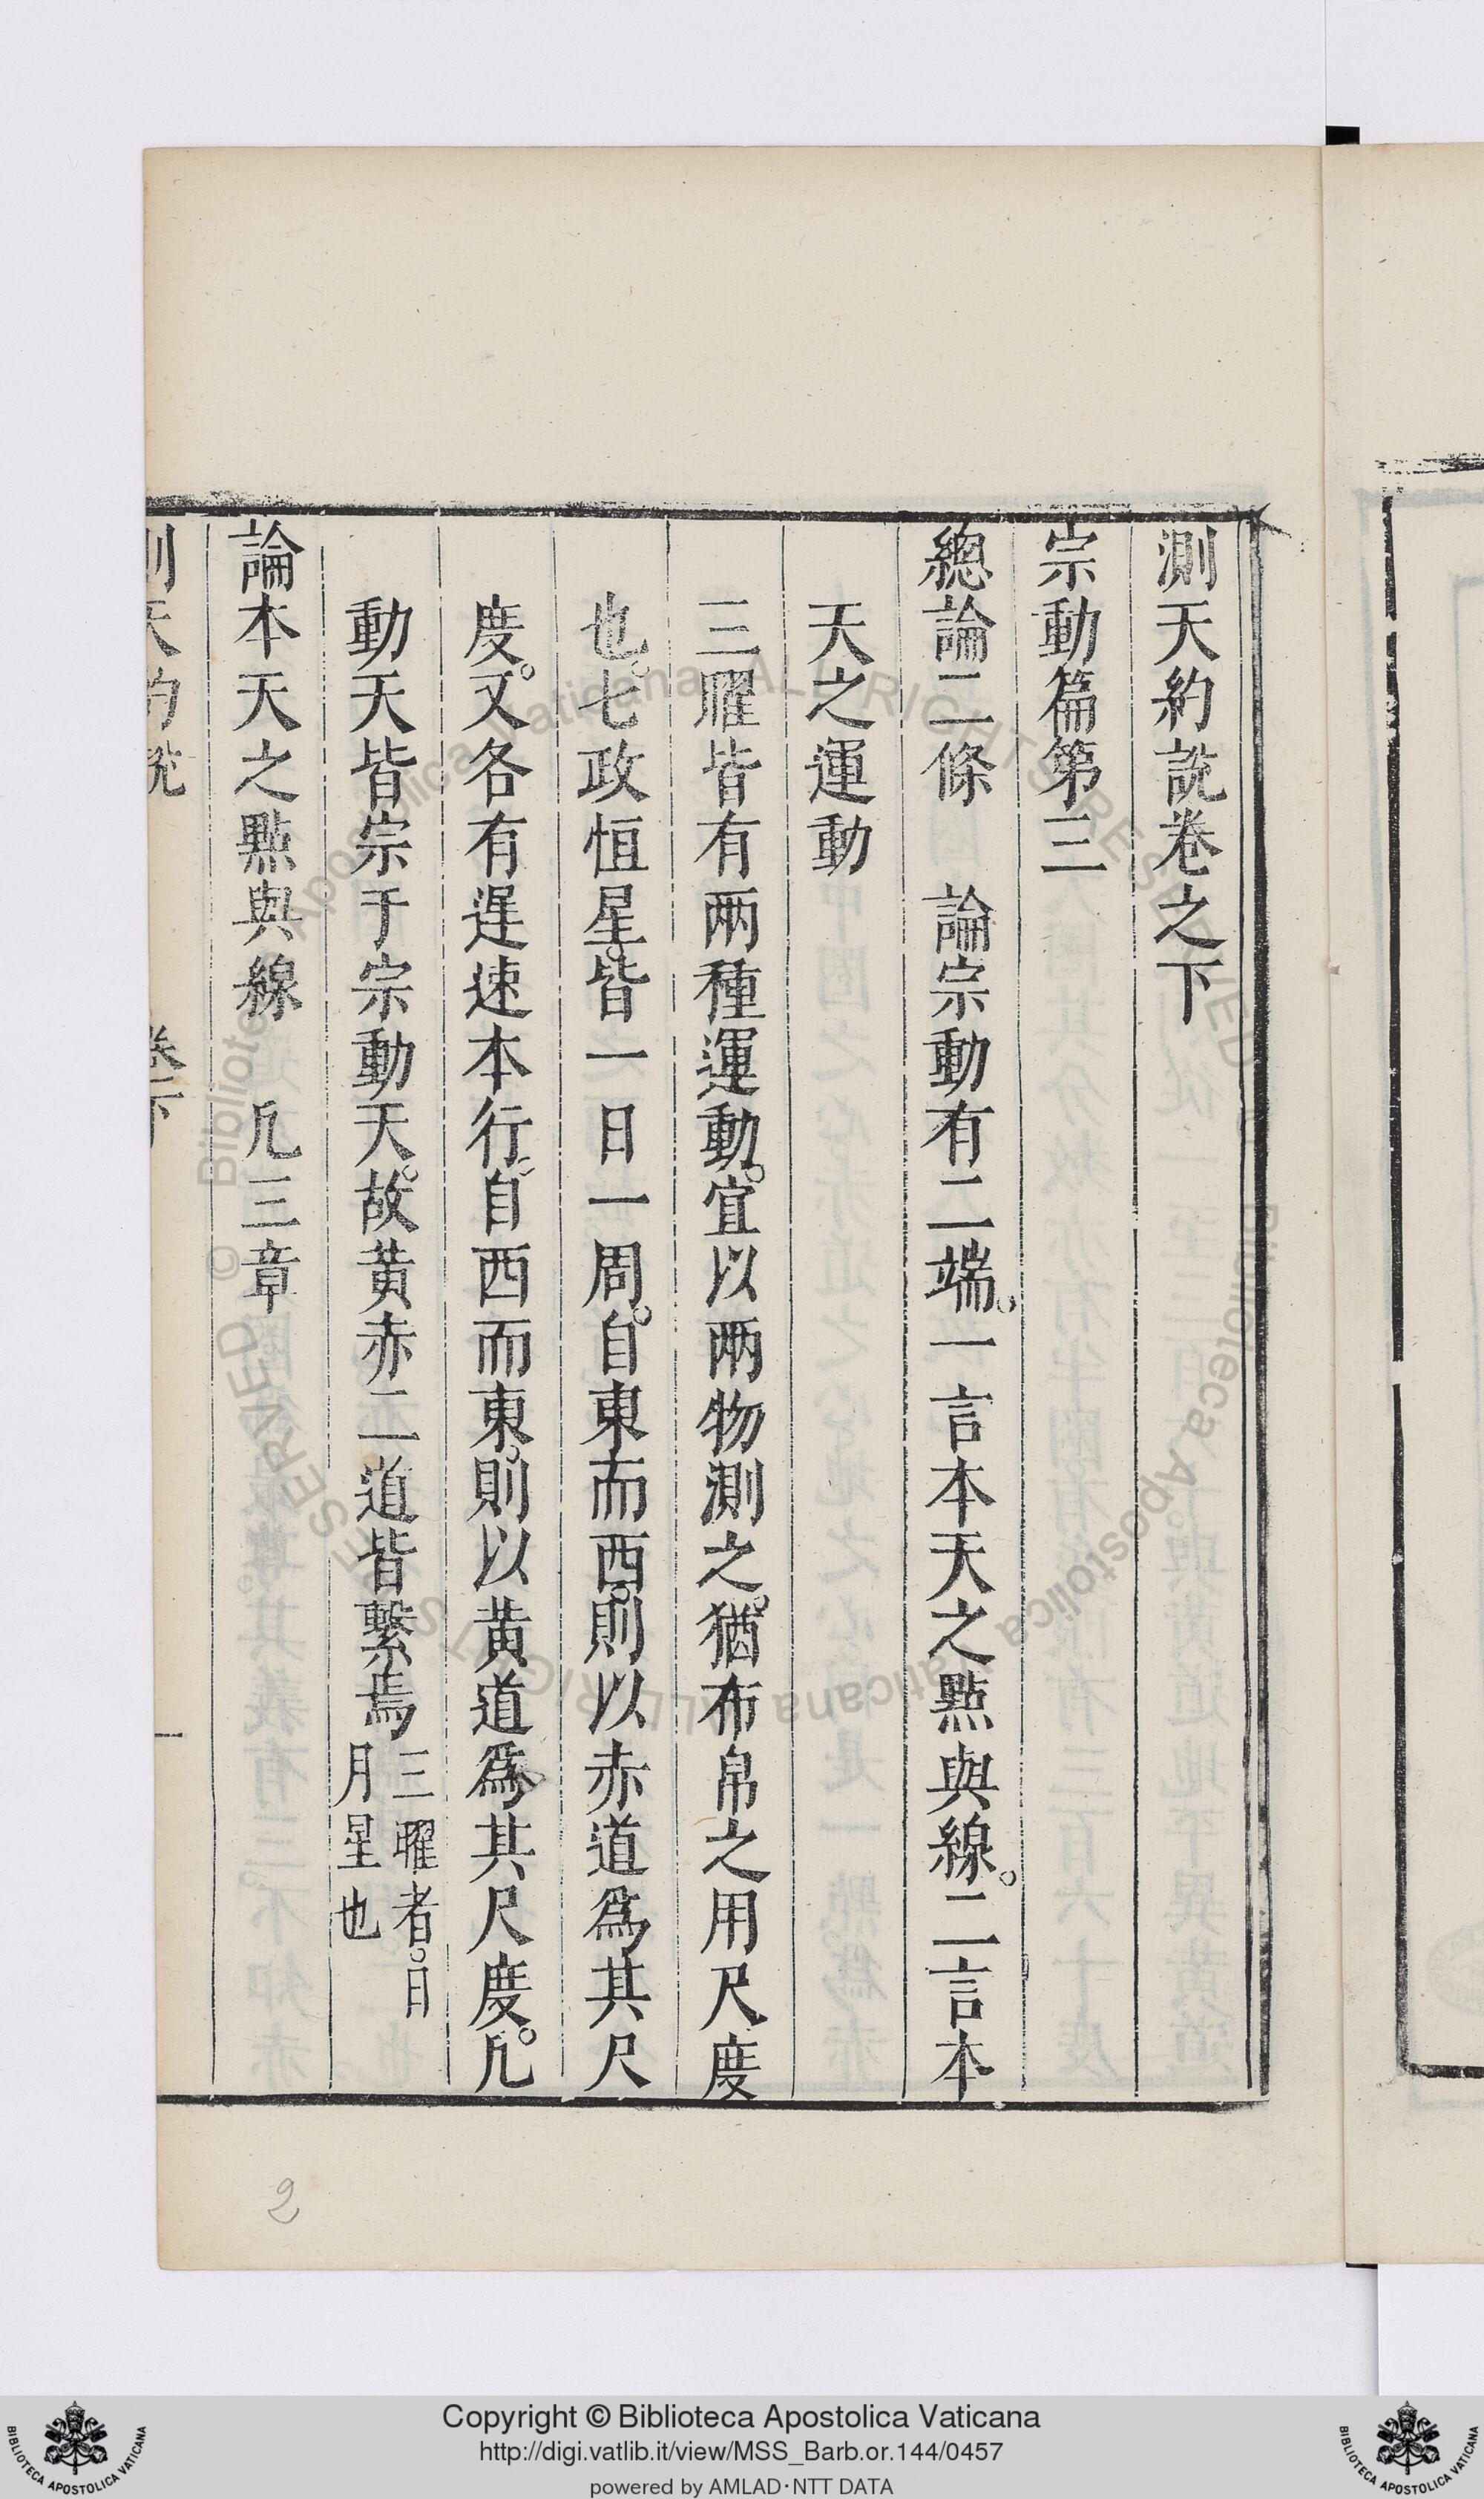 測天約說卷之下
宗動篇第三
總論二條　論宗動有二端。一言本天之點與線。二言本
天之運動
三曜皆有兩種運動。宜以兩物測之。猶布帛之用尺度
也。七政恒星。皆一日一周。自東而西。則以赤道爲其尺
度。又各有遲速本行。自西而東。則以黃道爲其尺度。凡
動天皆宗于宗動天。故黃赤二道皆繫焉三曜者。日
月星也
論本天之點與線　凡三章
測天約說　卷下　一
2
Copyright © Biblioteca Apostolica Vaticana
http://digi.vatlib.it/view/MSS_Barb.or.144/0457
powered by AMLAD·NTT DATA
BIBLIOTECA APOSTOLICA VATICANA
BIBLIOTECA APOSTOLICA VATICANA